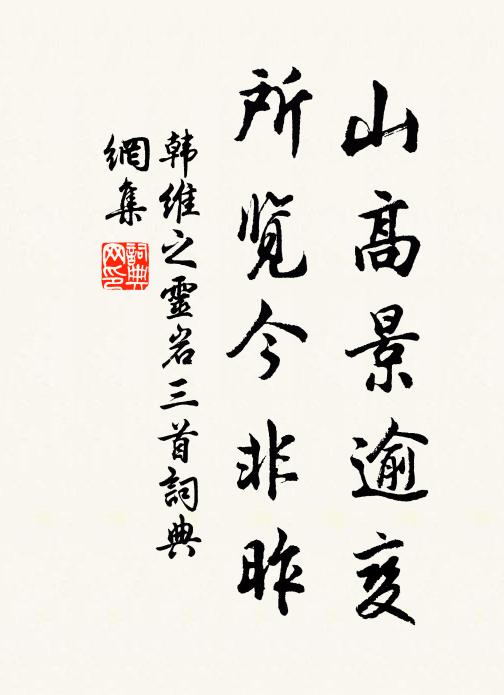 山高景逾变
所览今非昨
韩维之靈岩三首詞典
網集
詞典
网印